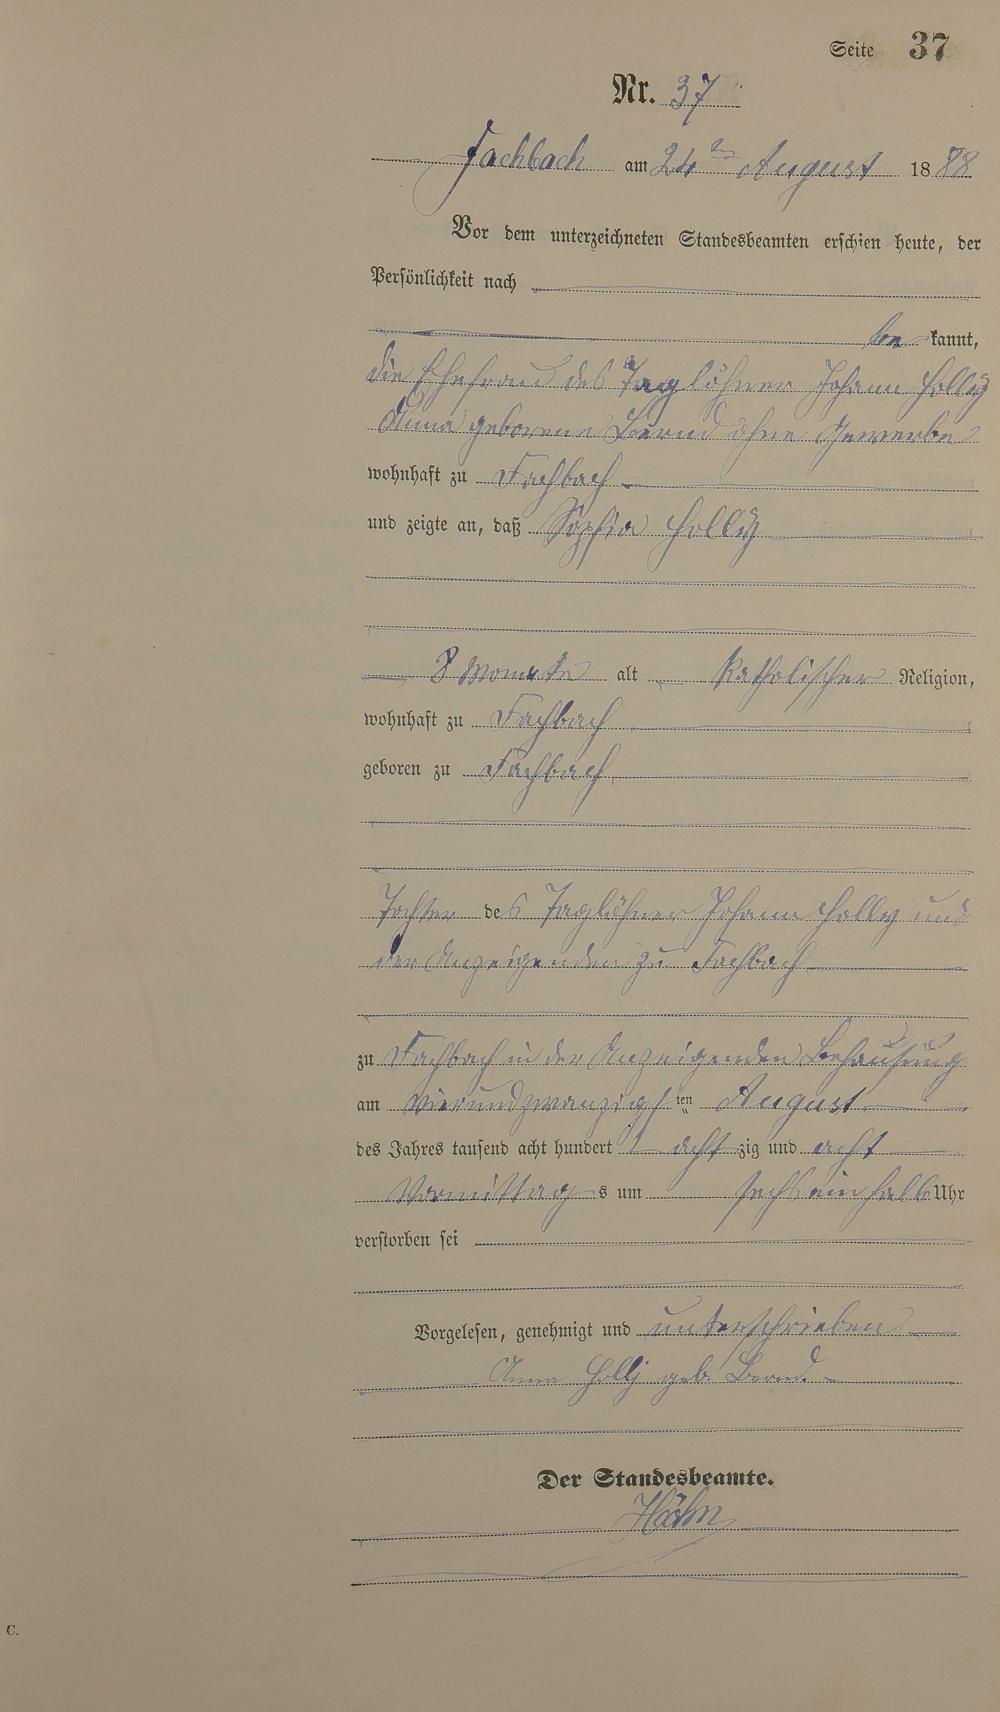 Seite 37
Nr. 37
Fachbach am 24ten August 1888
Vor dem unterzeichneten Standesbeamten erschien heute, der
Persönlichkeit nach
be kannt,
die Ehefrau des Taglöhner Johann Holly
Anna geborene Bernd ohne Gewerbe
wohnhaft zu Fachbach
und zeigte an, daß Sophia Holly
8 Monate alt Katholischer Religion,
wohnhaft zu Fachbach
geboren zu Fachbach
Tochter des Taglöhner Johann Holly und
der Anzeigenden zu Fachbach
zu Fachbach in der Anzeigenden Behausung
am vierundzwanzigsten August
des Jahres tausend acht hundert achtzig und acht
Vormittags um sechs ein halb Uhr
verstorben sei
Vorgelesen, genehmigt und unterschrieben
Anna Holly geb. Bernd.
Der Standesbeamte.
C.